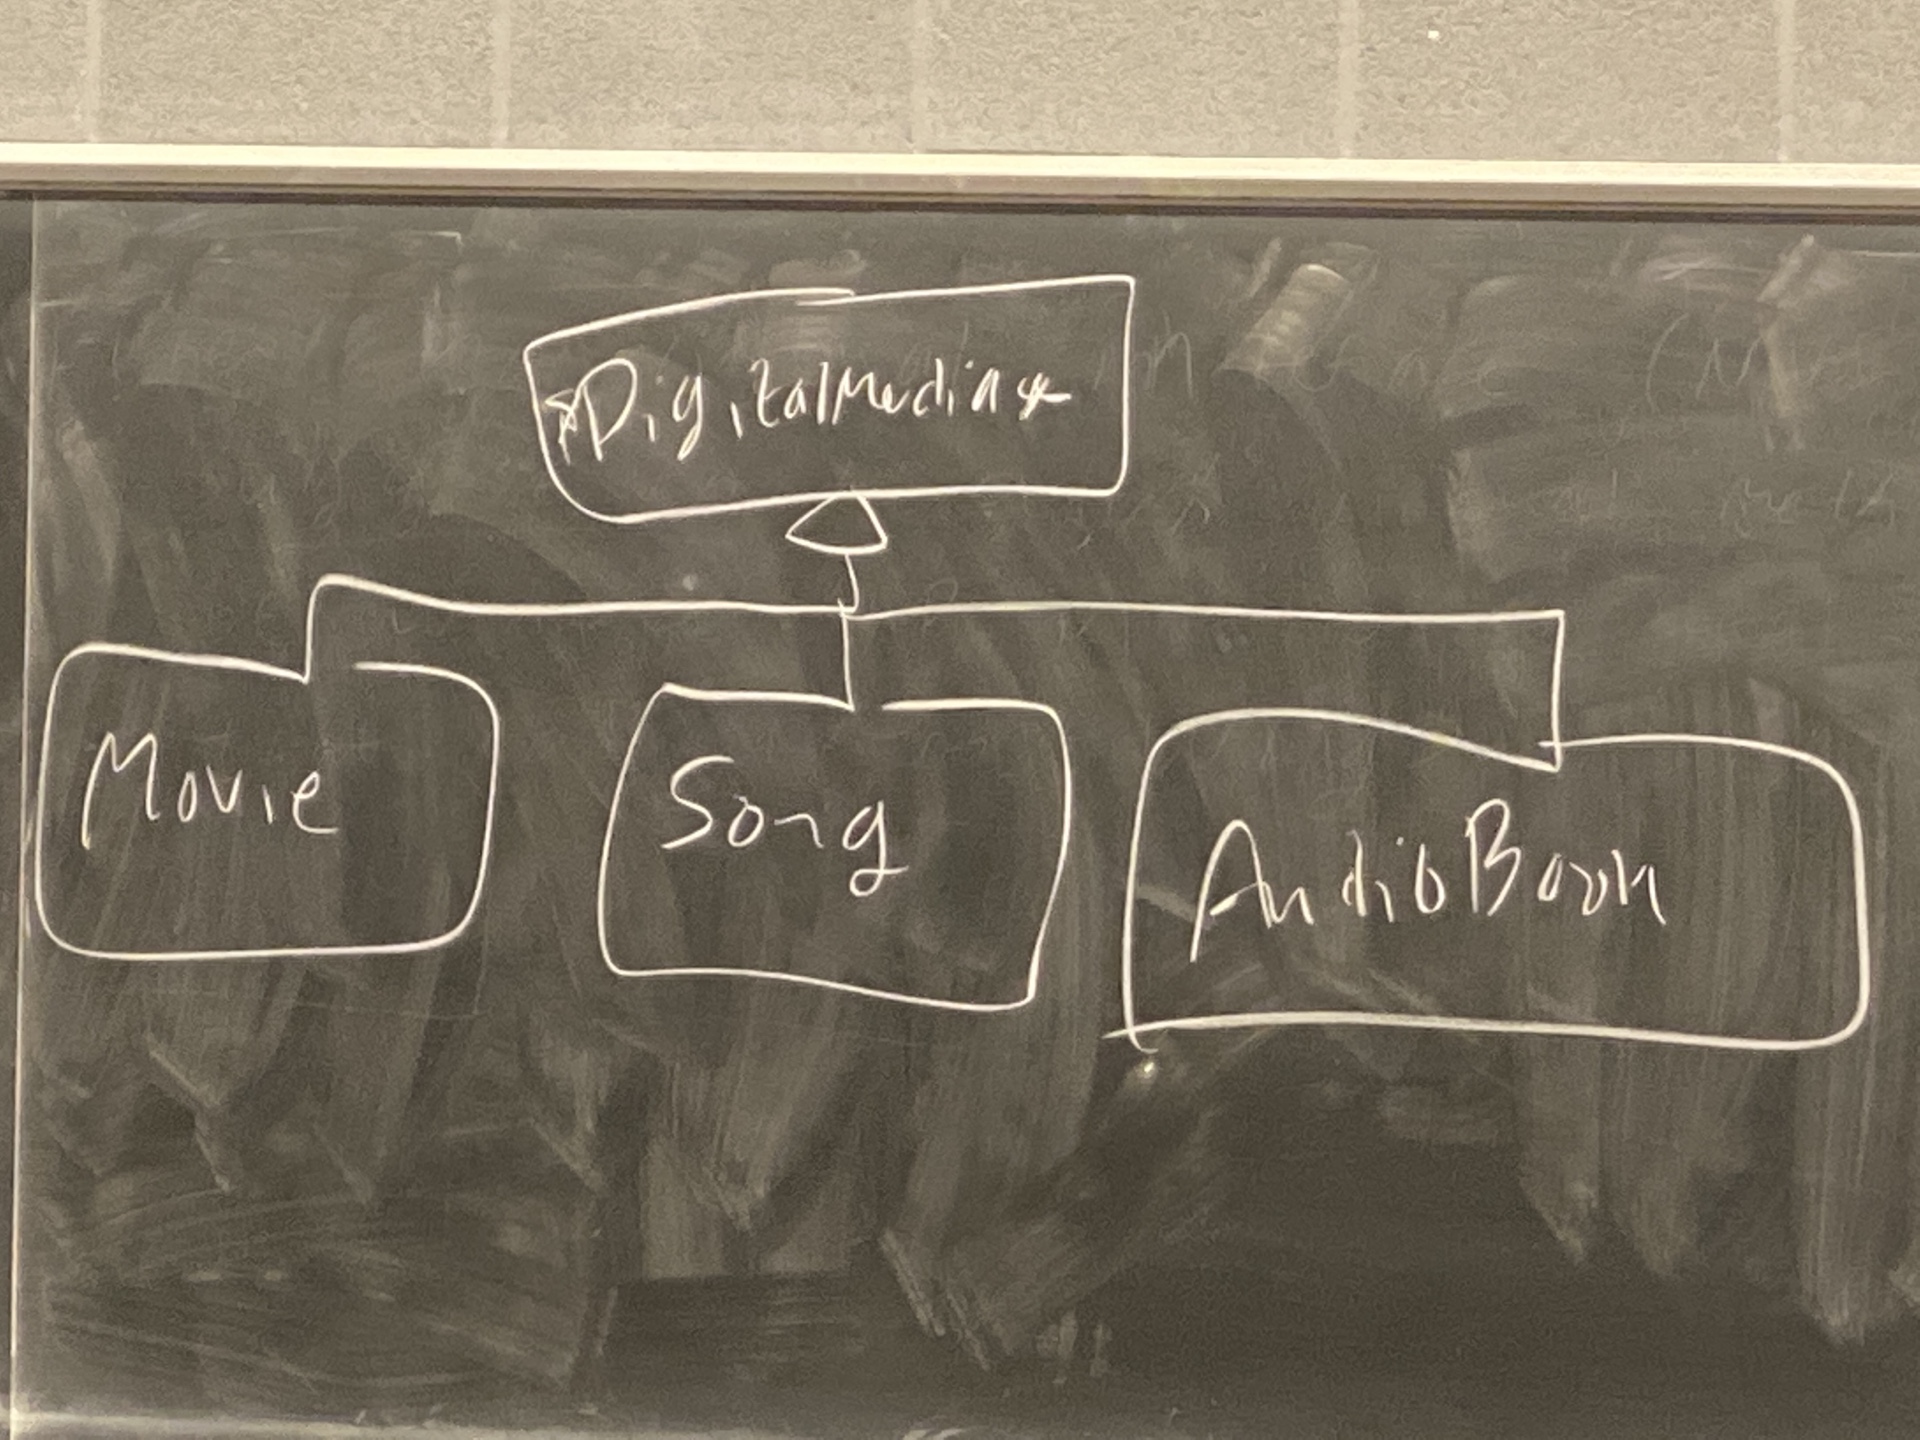 *DigitalMedia*
Movie
Song
AudioBook